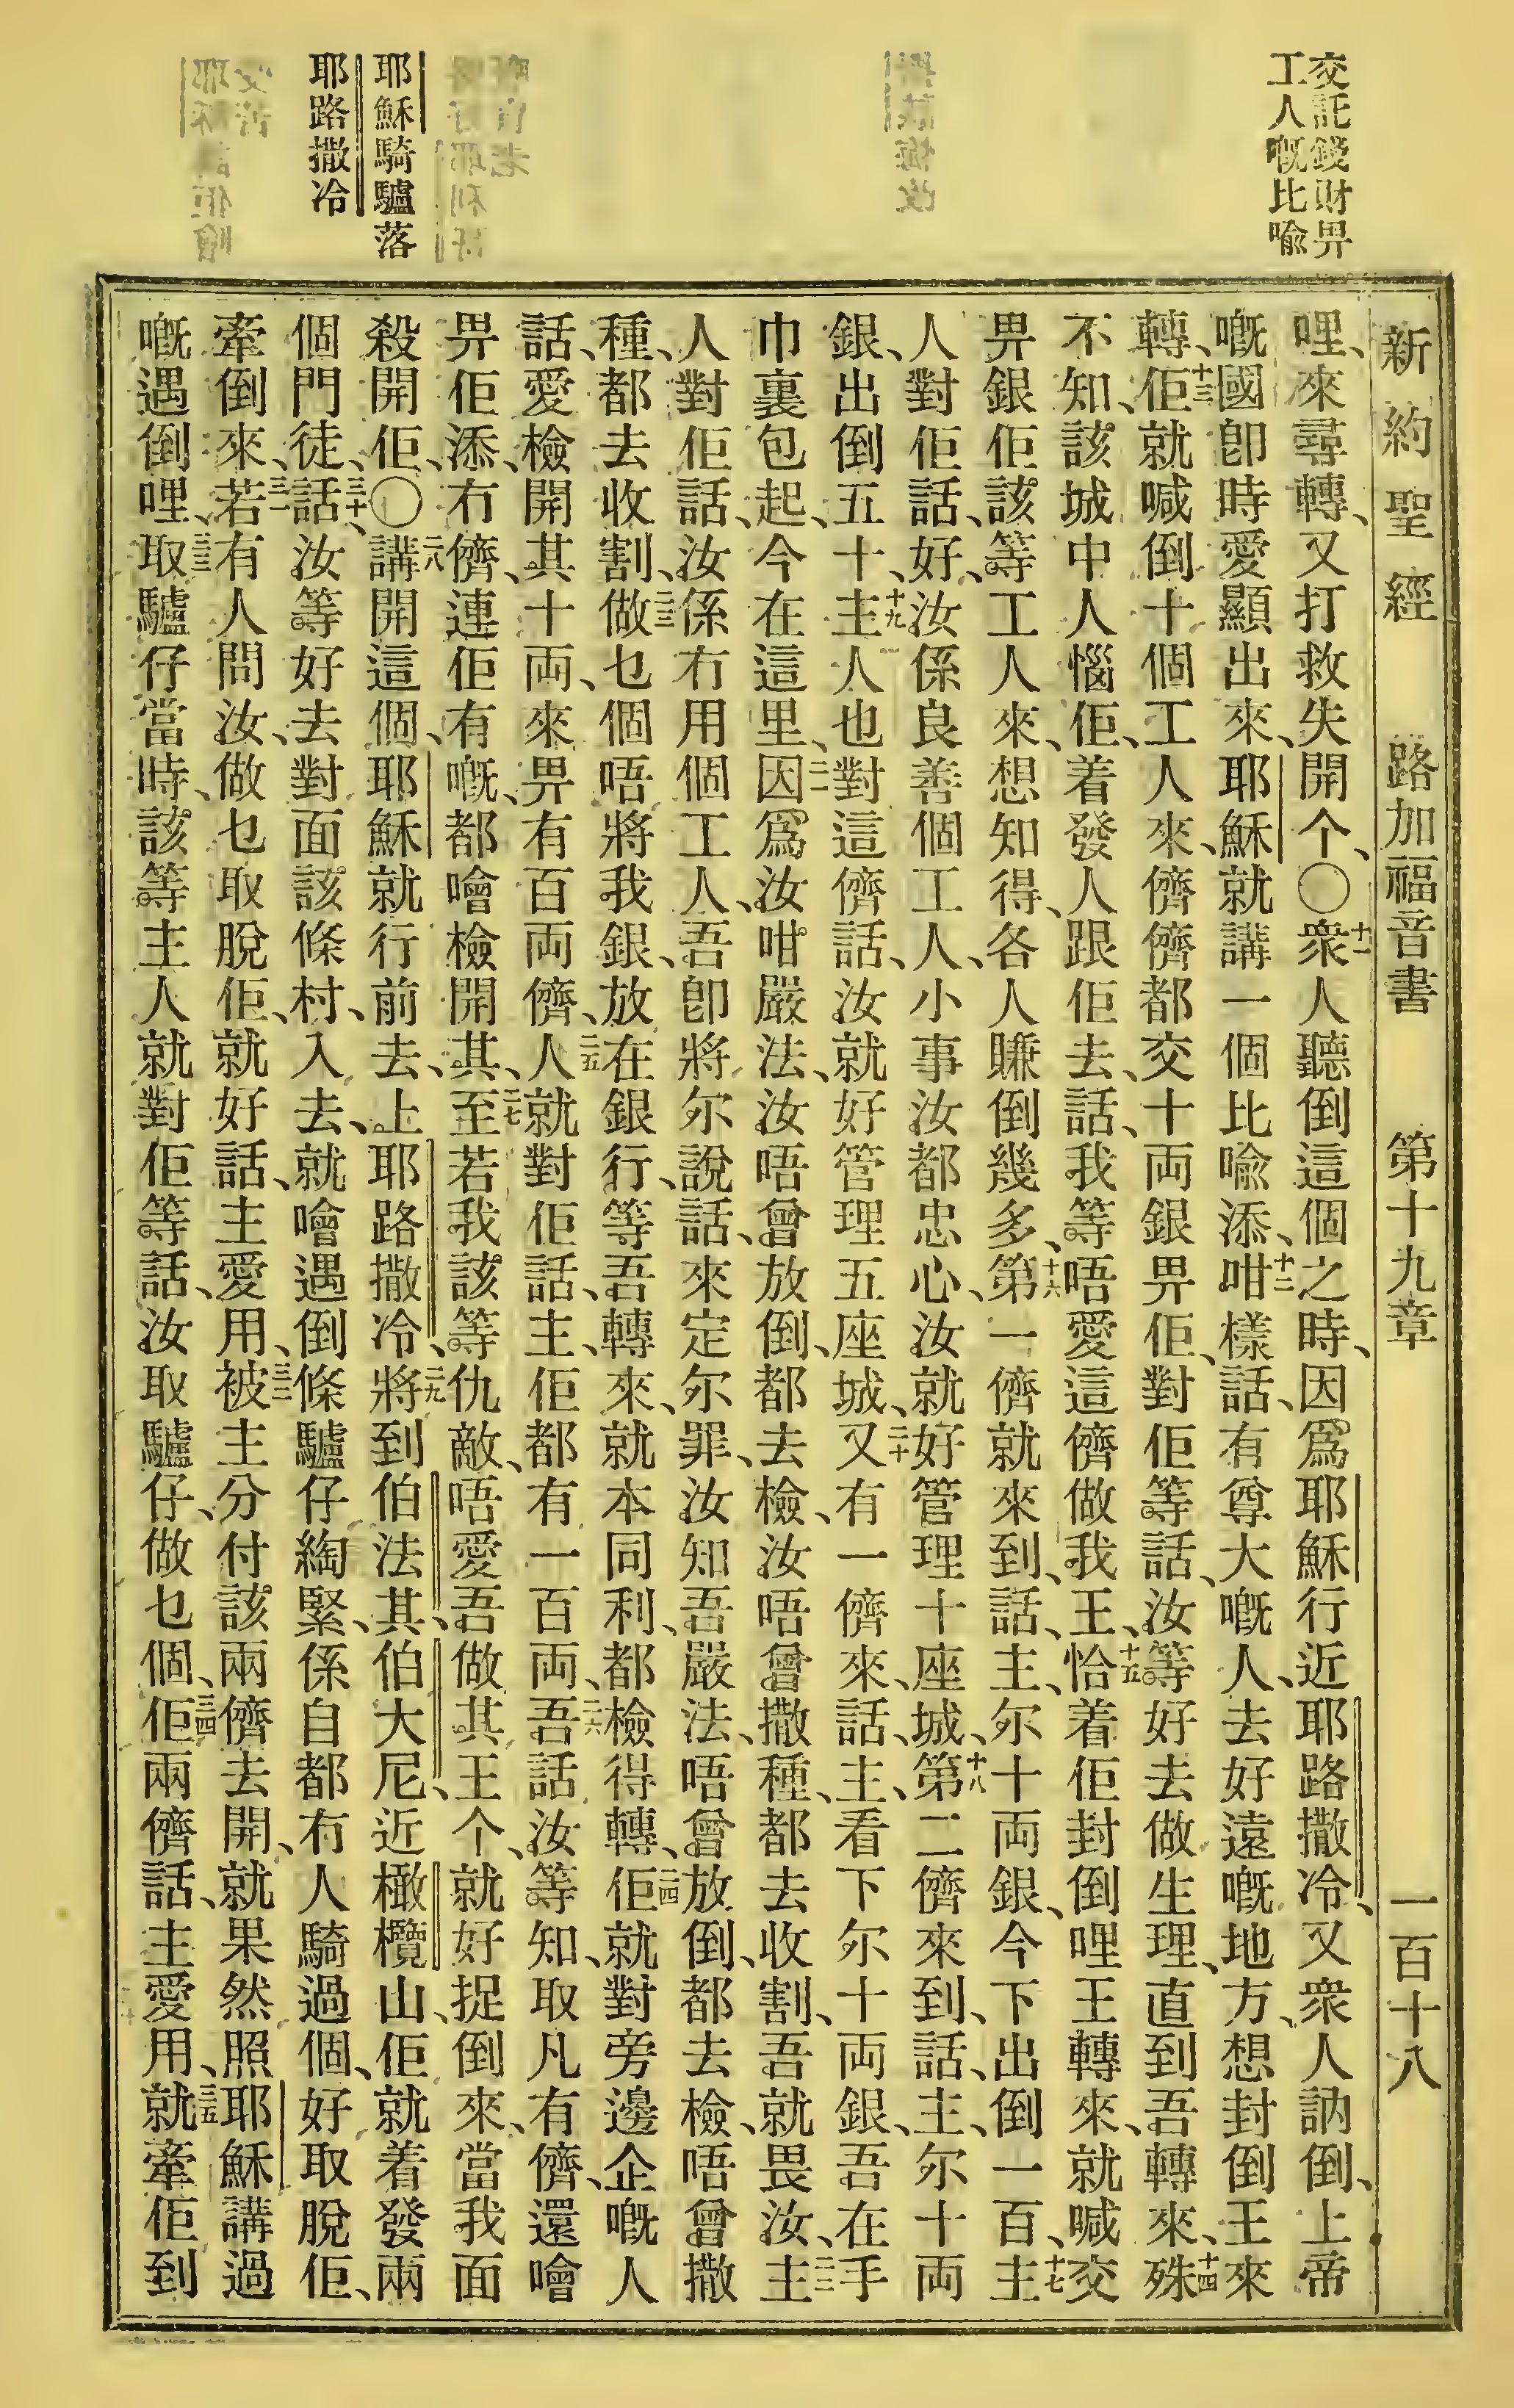 交託錢財畀
工人嘅比喩
耶穌騎驢落
耶路撒冷
新約聖經 路加福音書 第十九章 一百十八
哩、來尋轉、又打救失開个、〇十一衆人聽倒這個之時、因爲耶穌行近耶路撒冷、又衆人訥倒、上帝
嘅國卽時愛顯出來、耶穌就講一個比喩添、十二咁樣話、有尊大嘅人、去好遠嘅地方、想封倒王來
轉、十三佢就喊倒十個工人來、儕儕都交十両銀畀佢、對佢等話、汝等好去做生理、直到吾轉來、十四殊
不知、該城中人惱佢、着發人跟佢去、話、我等唔愛這儕做我王、十五恰着佢封倒哩王轉來、就喊交
畀銀佢該等工人來、想知得、各人賺倒幾多、十六第一儕就來到、話、主、尔十両銀、今下出倒一百、十七主
人對佢話、好、汝係良善個工人、小事汝都忠心、汝就好管理十座城、十八第二儕來到、話、主、尔十両
銀、出倒五十、十九主人也對這儕話、汝就好管理五座城、二十又有一儕來、話、主、看下尔十両銀、吾在手
巾裏包起、今在這里、二一因爲汝咁嚴法、汝唔曾放倒、都去檢、汝唔曾撒種、都去收割、吾就畏汝、二二主
人對佢話、汝係冇用個工人、吾卽將尔說話、來定尔罪、汝知吾嚴法、唔曾放倒、都去檢、唔曾撒
種、都去收割、二三做乜個唔將我銀、放在銀行、等吾轉來、就本同利、都檢得轉、二四佢就對旁邊企嘅人
話、愛檢開其十両、來畀有百両儕、二五人就對佢話、主、佢都有一百両、二六吾話汝等知、取凡有儕、還噲
畀佢添、冇儕、連佢有嘅、都噲檢開其、二七至若我該等仇敵、唔愛吾做其王个、就好捉倒來、當我面
殺開佢、〇二八講開這個、耶穌就行前去、上耶路撒冷、二九將到伯法其、伯大尼、近橄欖山、佢就着發兩
個門徒、三十話、汝等好去對面該條村、入去、就噲遇倒條驢仔綯緊、係自都冇人騎過個、好取脫佢、
牽倒來、三一若有人問汝、做乜取脫佢、就好話、主愛用、三二被主分付該兩儕去開、就果然照耶穌講過
嘅遇倒哩、三三取驢仔當時、該等主人就對佢等話、汝取驢仔、做乜個、三四佢兩儕話、主愛用、三五就牽佢到